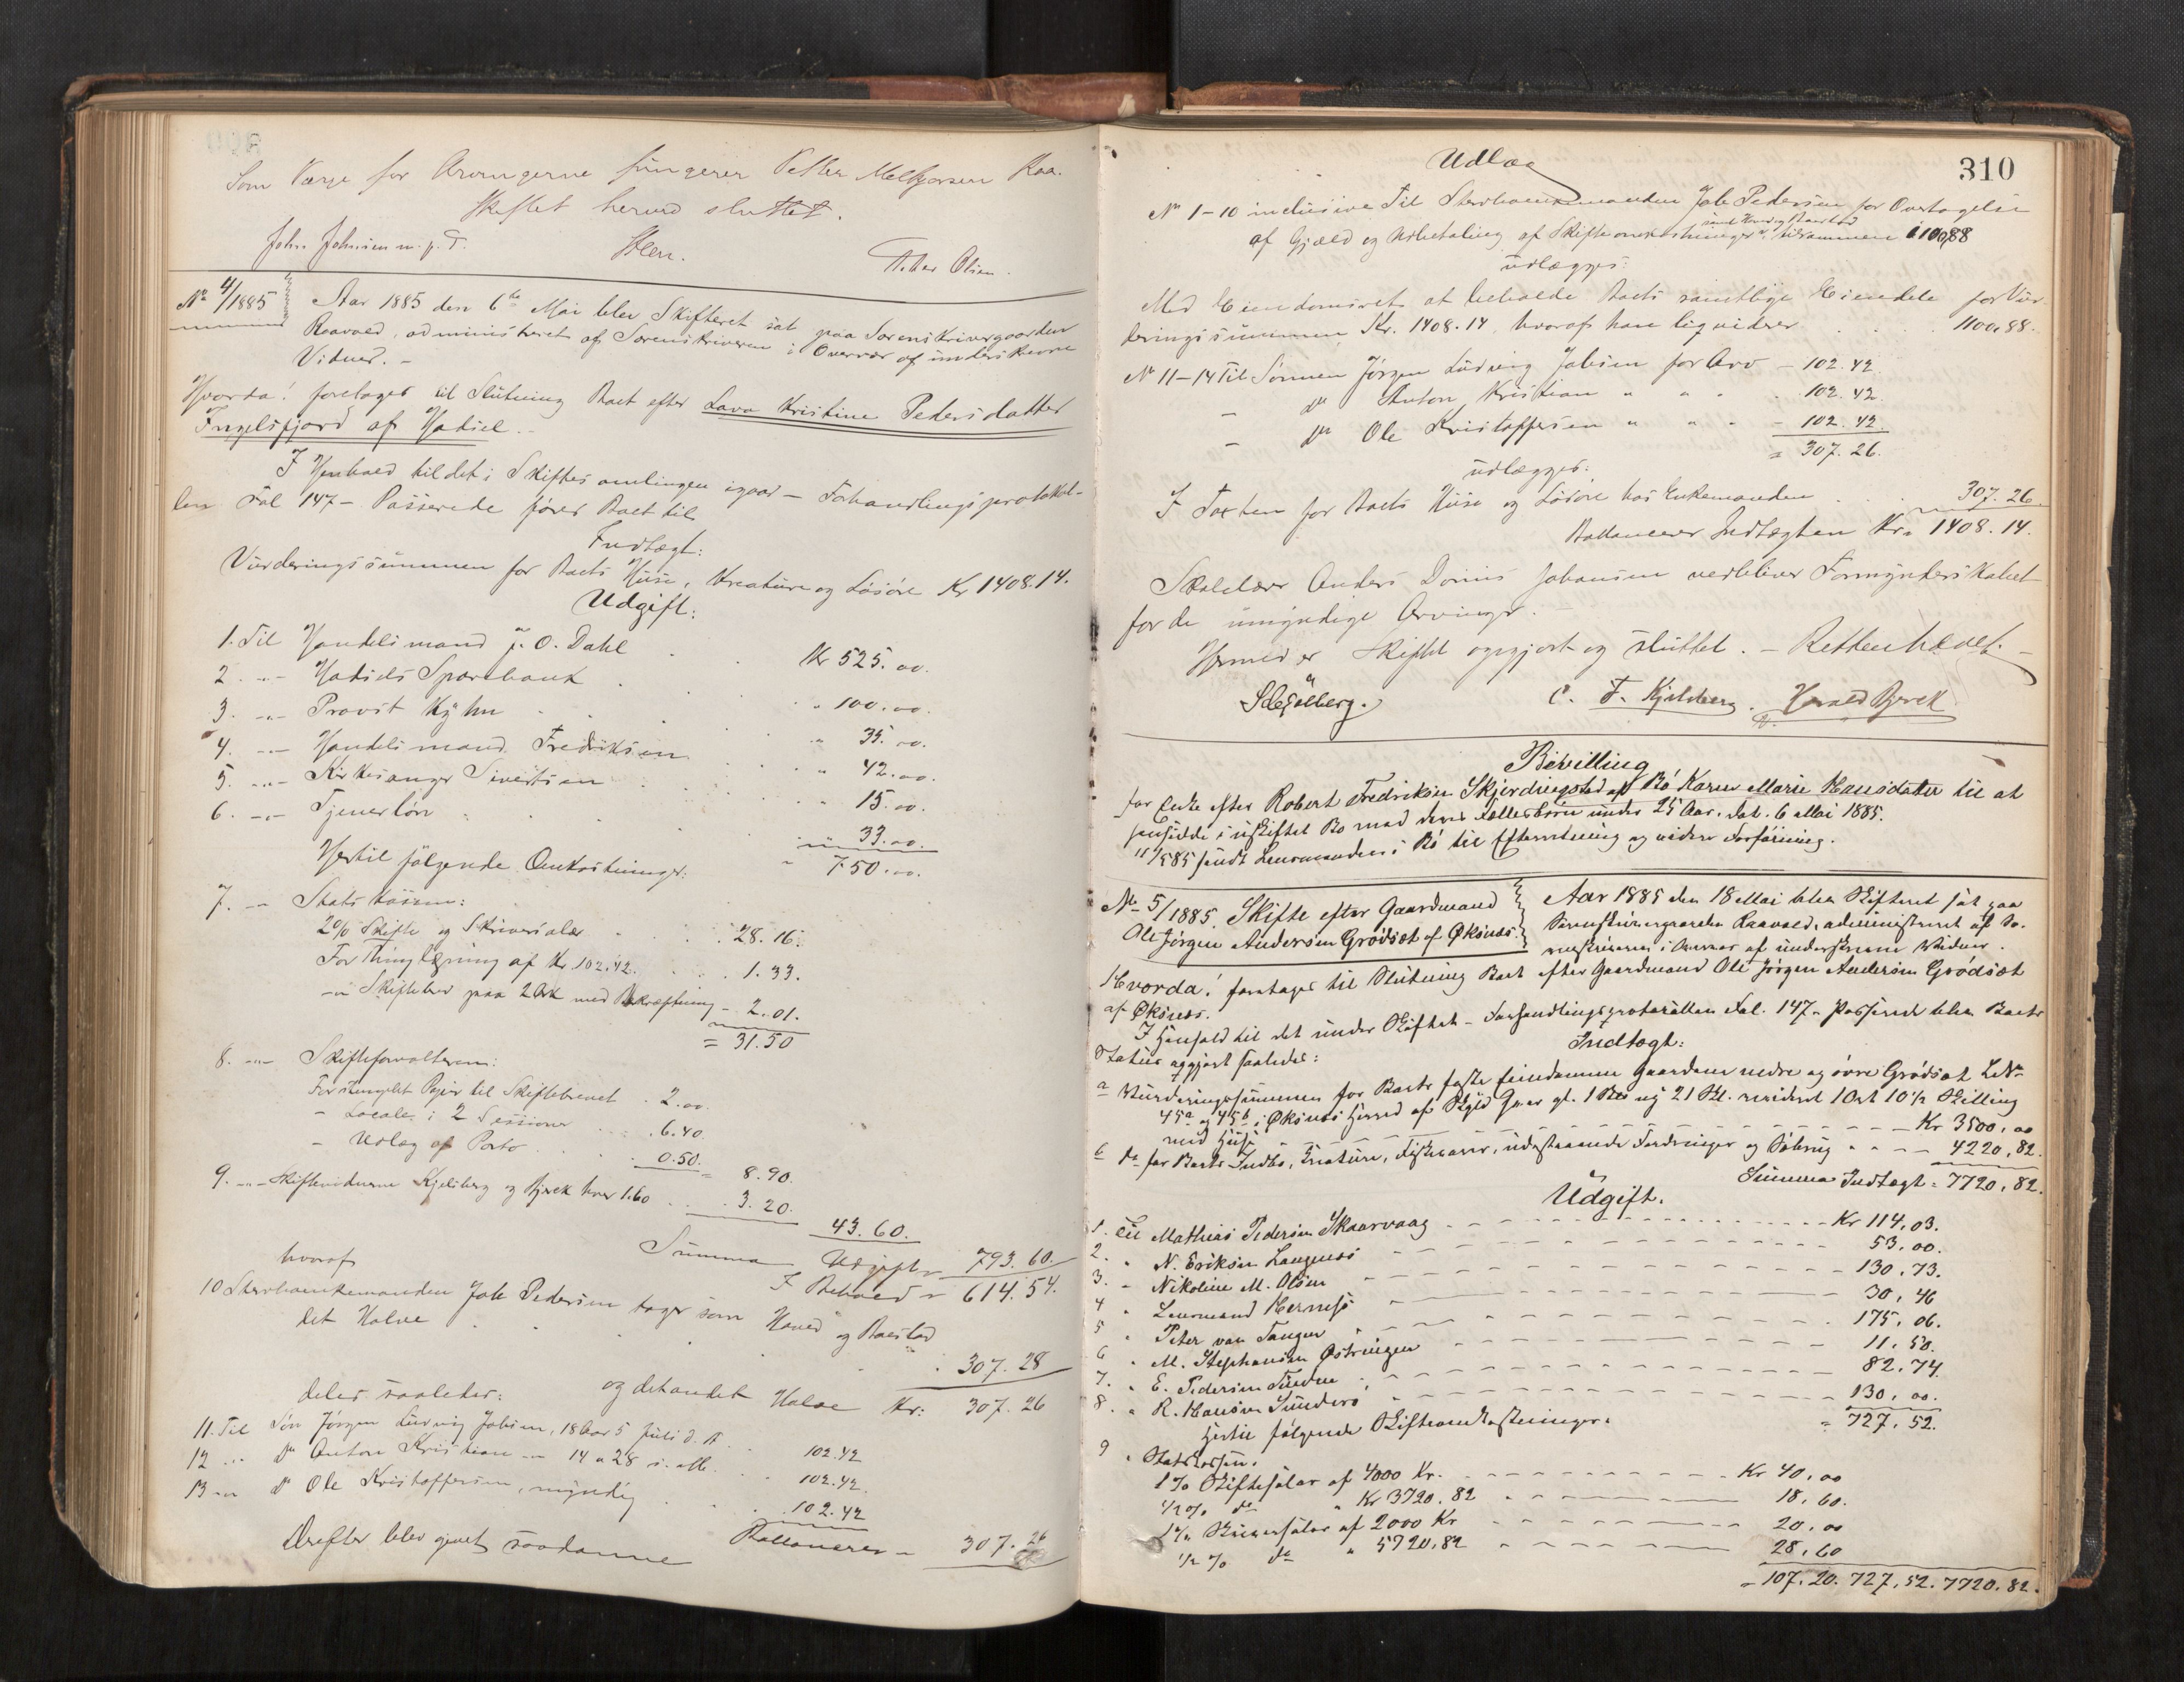 Som Værge for Arvingerne fungerer Petter Meltzersen Raa.
Skiftet herved sluttet.
John Johnsen m. p. P. Steen. Peter Olsen.
No 4/1885 Aar 1885 den 6te Mai blev Skifteret sat paa Sorenskrivergaarden
Raavold, administreret af Sorenskriveren i Overvær af underskrevne
Vidner. -
Hvorda! foretoges til Slutning Boet efter Lava Kristine Pedersdatter
Ingelsfjord af Hadsel. -
I Henhold til det i Skiftesamlingen igaar - Forhandlingsprotokol-
len Fol 147 - Passerede føres Boet til
Indtægt:
Vurderingssummen for Boets Huse, Kreature og Løsøre Kr 1408.14.
Udgift:
1. Til Handelsmand J. O. Dahl . . Kr 525.00.
2. -"- Hadsels Sparebank . . " 100.00.
3. -"- Provst Kyhn . . " 35.00.
4. -"- Handelsmand Fredriksen . . " 42.00.
5. -"- Kirkesanger Sivertsen . . " 15.00
6. -"- Tjenerløn . . . 33.00.
" 750.00.
Hertil følgende Omkostninger:
7. -"- Statskassen:
2% Skifte og Skriversalær . . . 28.16.
For Tinglæsning af Kr 102.42. . . 1.33.
-"- Skiftebrev paa 2 Ark med Bekræftning - 2.01.
= 31.50
8. -"- Skifteforvalteren:
For stemplet Papir til Skiftebrevet . 2.00.
- Locale i 2 Sessioner . . . 6.40.
- Udlæg af Porto . . . 0.50. = 8.90.
9. -"- Skiftevidnerne Kjelsberg og Bjerck hver 1.60 . . 3.20.
43.60.
Summa Udgift = 793.60.
I Behold = 614.54.
hvoraf
10 Sterboenkemanden Job Pedersen tager som Hoved og Boeslod
det Halve . . . . 307.28
og det andet Halve Kr: 307.26
deles saaledes:
11. Til Søn Jørgen Ludvig Jobsen, 18 Aar 5 Juli d. A. . . 102.42
12 -"- do Anton Kristian -"- 14 " 28 s. M. . . 102.42.
13 -"- do Ole Kristoffersen, myndig . . . 102.42
Ballancerer - 307.26
Derefter blev gjort saadanne
310
Udlæg
No 1-10 inclusive Til Sterboenkemanden Job Pedersen for Overtagelse
samt Hoved og Boeslod
af Gjæld og Udbetaling af Skifteomkostninger tilsammen 1100,88
udlægges:
Med Eiendomsret at beholde Boets samtlige Eiendele for Vur-
deringssummen Kr. 1408.14, hvoraf han liqviderer . . . 1100,88.
No 11-14 Til Sønnen Jørgen Ludvig Jobsen for Arv - 102.42
- do Anton Kristian " " . . 102.42.
- do Ole Kristoffersen " " - - 102.42.
= 307.26.
udlægges:
I Taxten for Boets Huse og Løsøre hos Enkemanden . . . 307.26.
Ballancerer Indtægten Kr. 1408.14.
Skolelærer Anders Dorius Johansen vedbliver Formynderskabet
for de umyndige Arvinger. -
Hermed er Skiftet opgjort og sluttet. - Retten hævet. -
Schjølberg. C. F. Kjelsberg. Harald Bjerck
Bevilling
for Enke efter Robert Fredriksen Skjerdingstad af Bø Karen Marie Hansdatter til at
hensidde i uskiftet Bo med deres Fællesbørn under 25 Aar. Dat. 6 Mai 1885.
11/5 85 sendt Lensmanden i Bø til Efterretning og videre Forføining.
No 5/1885. Skifte efter Gaardmand
Ole Jørgen Andersen Grødsæt af Øksnes.
Aar 1885 den 18 Mai blev Skifteret sat paa
Sorenskrivergaarden Raavold, administreret af So-
renskriveren i Overvær af underskrevne Vidner.
Hvorda! foretages til Slutning Boet efter Gaardmand Ole Jørgen Andersen Grødsæt
af Øksnes.
I Henhold til det under Skiftet - Forhandlingsprotokollen Fol. 147 - Passerede blev Boets
Status opgjort saaledes:
Indtægt:
a Vurderingssummen for Boets faste Eiendomme Gaardene nedre og øvre Grødsæt LNo
45a og 45b i Øksnes Herred af Skyld gl. 1 ny 21 revideret 1 Ort 10 1/2 Skilling
med Huse - - - - - - - - - - Kr 3500,00
b do for Boets Indbo, Kreature, Fiskevarer, udestaaende Fordringer og Søbrug - - - - 4220,82.
Summa Indtægt = 7720,82.
Udgift.
1. Til Mathias Pedersen Skaarvaag - - - - - - Kr 114,03.
2. " N. Eriksen Langenes - - - - - - 53,00.
3. " Nikoline M. Olsen - - - - - - 130,73.
4 " Lensmand Hernesø - - - - - - 30,46
5 " Peter van Tangen - - - - - - 175,06.
6 " M. Stephansen Østringen - - - - - - 11,50.
7. " E. Pedersen Tunden - - - - - - 82,74.
8. " R. Hansen Sunderø - - - - - - 130,00.
Hertil følgende Skifteomkostninger. = 727,52.
9 " Statskassen.
1% Skiftesalær af 4000 Kr. - - - - - Kr 40,00
1/2% do " Kr 3720,82 - - - - - 18,60.
1% Skriversalær af 2000 Kr - - - - - 20,00
1/2% do " 5720,82 - - - - - 28,60
= 107.20. 727,52. 7720.82.